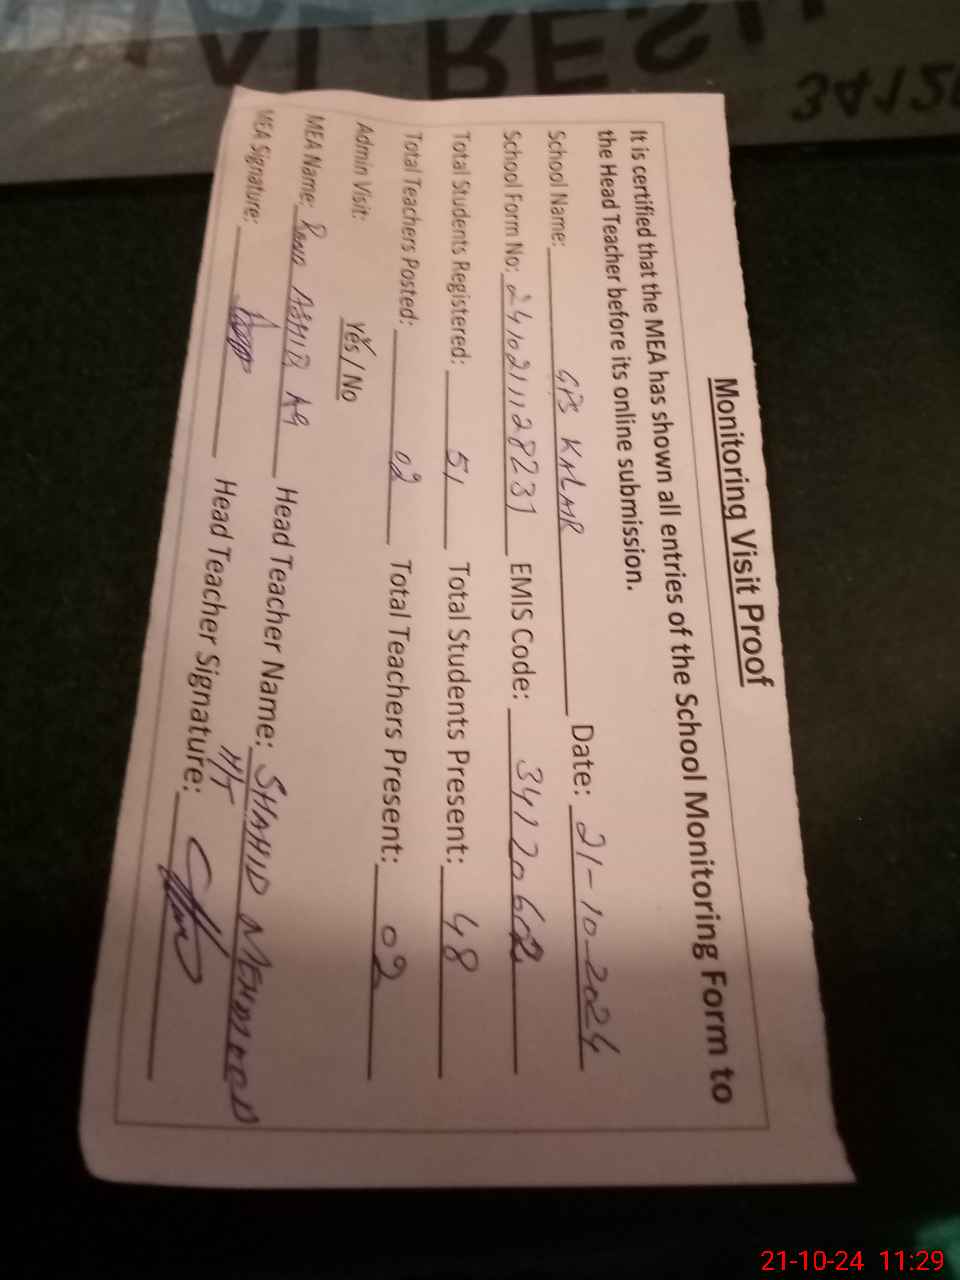 Monitoring Visit Proof
It is certified that the MEA has shown all entries of the School Monitoring Form to
the Head Teacher before its online submission.
School Name: GPS KALAR Date: 21-10-2024
School Form No: 241021128231 EMIS Code: 34120602
Total Students Registered: 51 Total Students Present: 48
Total Teachers Posted: 02 Total Teachers Present: 02
Admin Visit: Yes / No
MEA Name: ASHID Head Teacher Name: SHAHID MEHMOOD
MEA Signature: Head Teacher Signature:
H/T
21-10-24 11:29